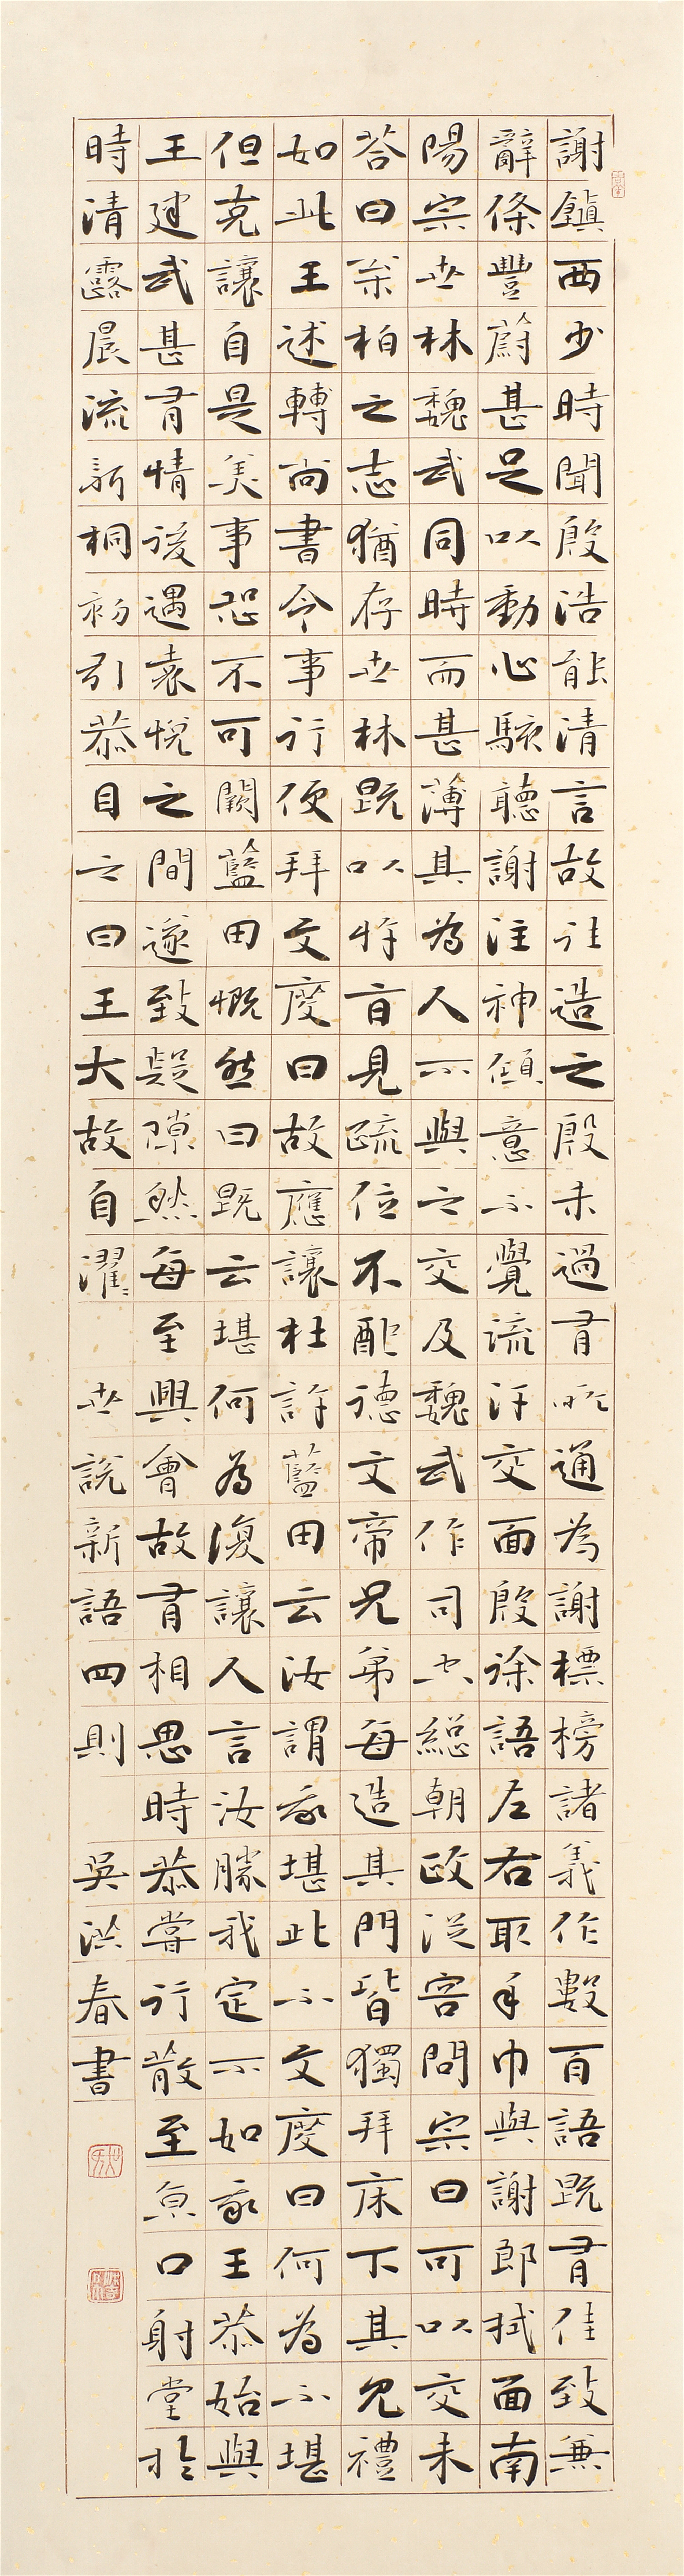 謝鎮西少時聞殷浩能清言故往造之殷未過有所通為謝標榜諸義作數百語既有佳致兼
辭條豐蔚甚足以動心駭聽謝注神傾意不覺流汗交面殷徐語左右取手巾與謝郎拭面南
陽宗世林魏武同時而甚薄其為人不與之交及魏武作司空總朝政從容問宗曰可以交未
答曰松柏之志猶存世林既以忤旨見疏位不配德文帝兄弟每造其門皆獨拜床下其見禮
如此王述轉尚書令事行便拜文度曰故應讓杜許藍田云汝謂我堪此不文度曰何為不堪
但克讓自是美事恐不可闕藍田慨然曰既云堪何為復讓人言汝勝我定不如我王恭始與
王建武甚有情後遇袁悅之間遂致疑隙然每至興會故有相思時恭嘗行散至京口射堂於
時清露晨流新桐初引恭目之曰王大故自濯濯 世說新語四則 吳洪春書